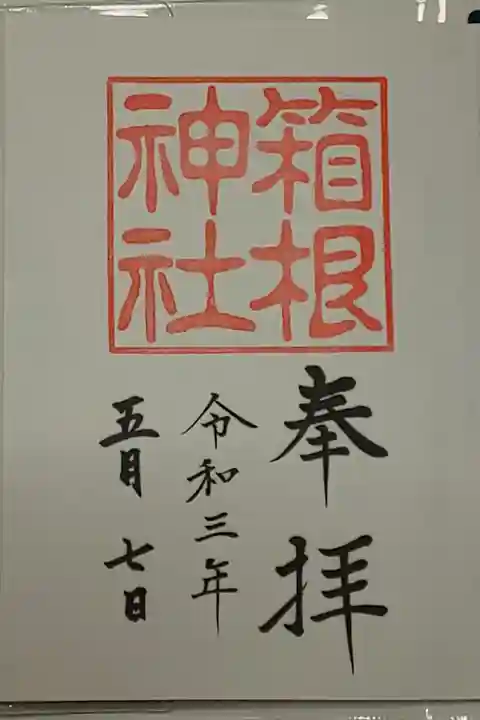 箱根
神社
奉拝
令和三年
五月七日